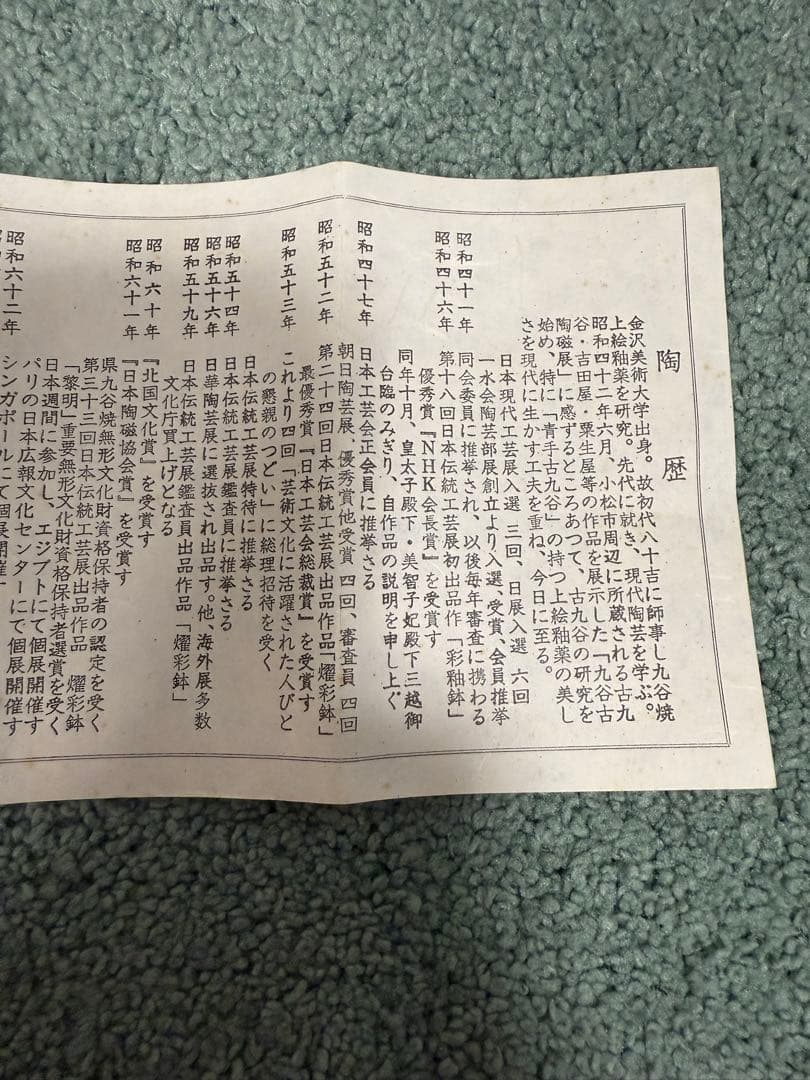 陶歴
金沢美術大学出身。故初代八十吉に師事し九谷焼
上絵釉薬を研究。先代に就き、現代陶芸を学ぶ。
昭和四十二年六月、小松市周辺に所蔵される古九
谷・吉田屋・粟生屋等の作品を展示した「九谷古
陶磁展」に感ずるところあつて、古九谷の研究を
始め、特に「青手古九谷」の持つ上絵釉薬の美し
さを現代に生かす工夫を重ね、今日に至る。
日本現代工芸展入選 三回、日展入選 六回
昭和四十一年 一水会陶芸部展創立より入選、受賞、会員推挙
同会委員に推挙され、以後毎年審査に携わる
昭和四十六年 第十八回日本伝統工芸展初出品作「彩釉鉢」
優秀賞『NHK会長賞』を受賞す
同年十月、皇太子殿下・美智子妃殿下三越御
台臨のみぎり、自作品の説明を申し上ぐ
昭和四十七年 日本工芸会正会員に推挙さる
朝日陶芸展、優秀賞他受賞 四回、審査員 四回
昭和五十二年 第二十四回日本伝統工芸展出品作品「燿彩鉢」
最優秀賞『日本工芸会総裁賞』を受賞す
昭和五十三年 これより四回「芸術文化に活躍された人びと
の懇親のつどい」に総理招待を受く
日本伝統工芸展特待に推挙さる
昭和五十四年 日本伝統工芸展鑑査員に推挙さる
昭和五十六年 日華陶芸展に選抜され出品す。他、海外展多数
昭和五十九年 日本伝統工芸展鑑査員出品作品「燿彩鉢」
文化庁買上げとなる
昭和六十年 『北国文化賞』を受賞す
昭和六十一年 『日本陶磁協会賞』を受賞す
県九谷焼無形文化財資格保持者の認定を受く
第三十三回日本伝統工芸展出品作品 燿彩鉢
「黎明」重要無形文化財資格保持者選賞を受く
日本週間に参加し、エジプトにて個展開催す
昭和六十二年 パリの日本広報文化センターにて個展開催す
シンガポールにて個展開催す